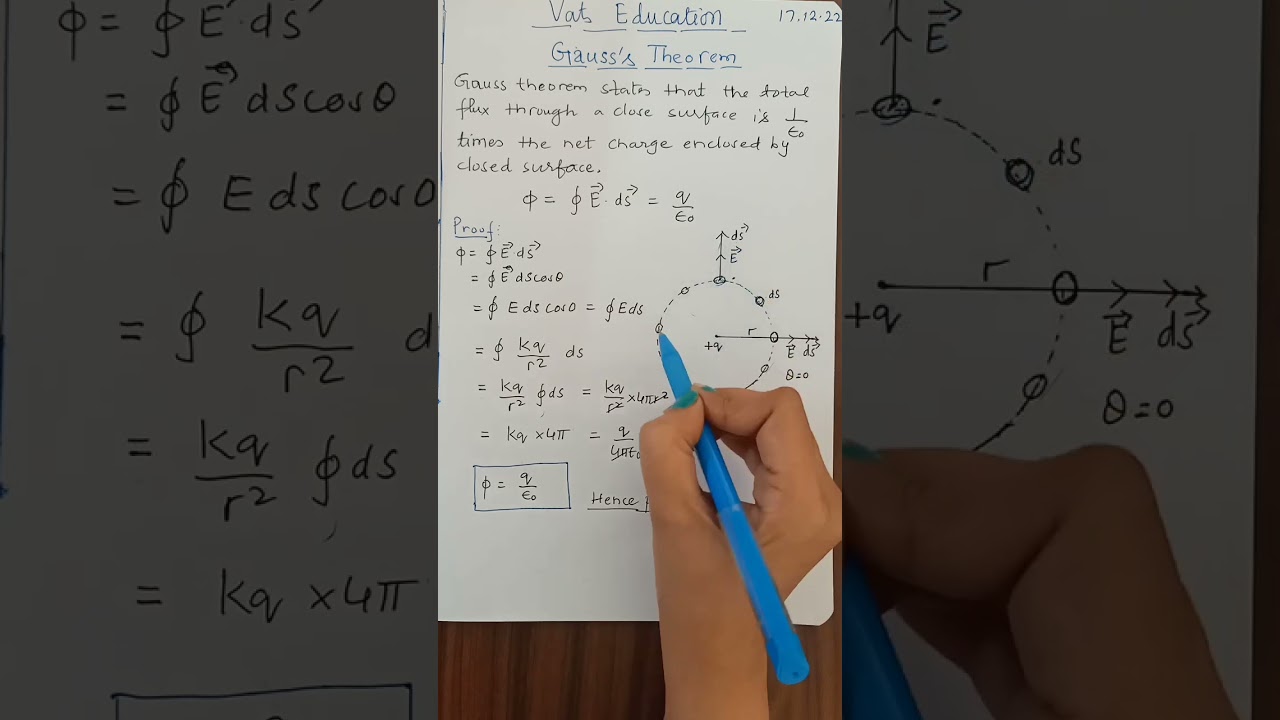 Vats Education 17.12.22
Gauss's Theorem
Gauss theorem states that the total
flux through a close surface is 1/ε₀
times the net charge enclosed by
closed surface.
ϕ = ∮ E⃗ · ds⃗ = q/ε₀
Proof:
ϕ = ∮ E⃗ ds⃗
= ∮ E⃗ ds cosθ
= ∮ E ds cosθ = ∮ E ds
= ∮ kq/r² ds
= kq/r² ∮ ds = kq/r² × 4πr²
= kq × 4π = q/4πε₀
ϕ = q/ε₀
Hence
ds⃗
E⃗
ds
r
+q E⃗ ds⃗
θ = 0
ϕ = ∮ E⃗ ds⃗
= ∮ E⃗ ds cosθ
= ∮ E ds cosθ
= ∮ kq/r²
= kq/r² ∮ ds
= kq × 4π
E⃗
ds
r
+q E⃗ ds⃗
θ = 0